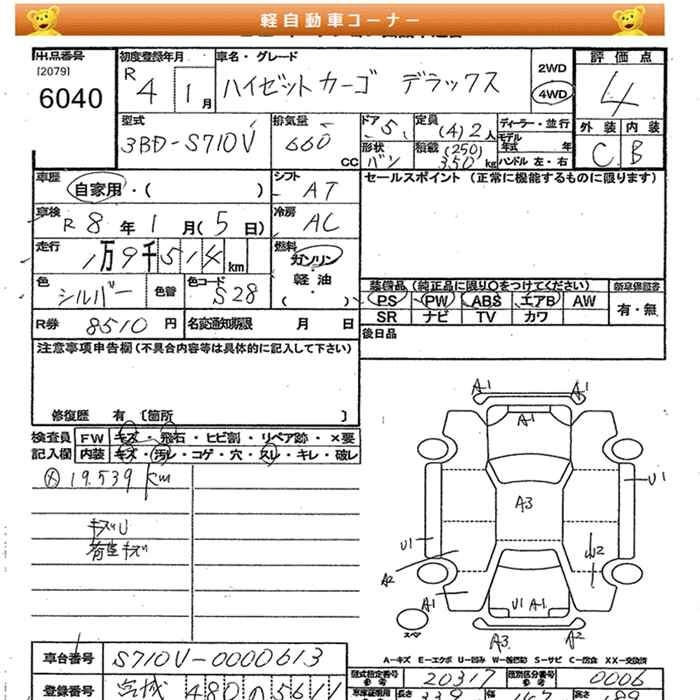 軽自動車コーナー
出品番号
[2079]
6040
初度登録年月
R 4 1月
車名・グレード
ハイゼットカーゴ デラックス
2WD
4WD
評価点
4
外装 内装
C B
型式
3BD-S710V
排気量
660 CC
ドア
5
形状
バン
定員
(4)2人
積載 (250)
350 kg
ディーラー・並行
モデル
年式 年
ハンドル 左・右
車歴
自家用・( )
シフト
AT
セールスポイント (正常に機能するものに限ります)
車検
R 8年 1月(5日)
冷房
AC
走行
1万9千514km
燃料
ガソリン
軽油
( )
色
シルバー
色替
色コード
S28
装備品 (純正品に限り○をつけてください)
新車保証書
PS PW ABS エアB AW
SR ナビ TV カワ
有・無
R券 8510円
名変通知期限 月 日
後日品
注意事項申告欄(不具合内容等は具体的に記入して下さい)
修復歴 有 〔箇所 〕
検査員
記入欄
FW キズ・飛石・ヒビ割・リペア跡・×要
内装 キズ・汚レ・コゲ・穴・スレ・キレ・破レ
19.539km
キズU
荷室キズ
A1 A1
A3
U1
U1
U2
A2
A1
U1 A1
A3 A2
スペア
A…キズ E…エクボ U…凹み W…補修跡 S…サビ C…腐食 XX…交換済
車台番号 S710V-0000613
型式指定番号
参考
20317
類別区分番号
参考
0006
登録番号 宮城 480 の 5611
長さ 339
幅 147
高さ 189